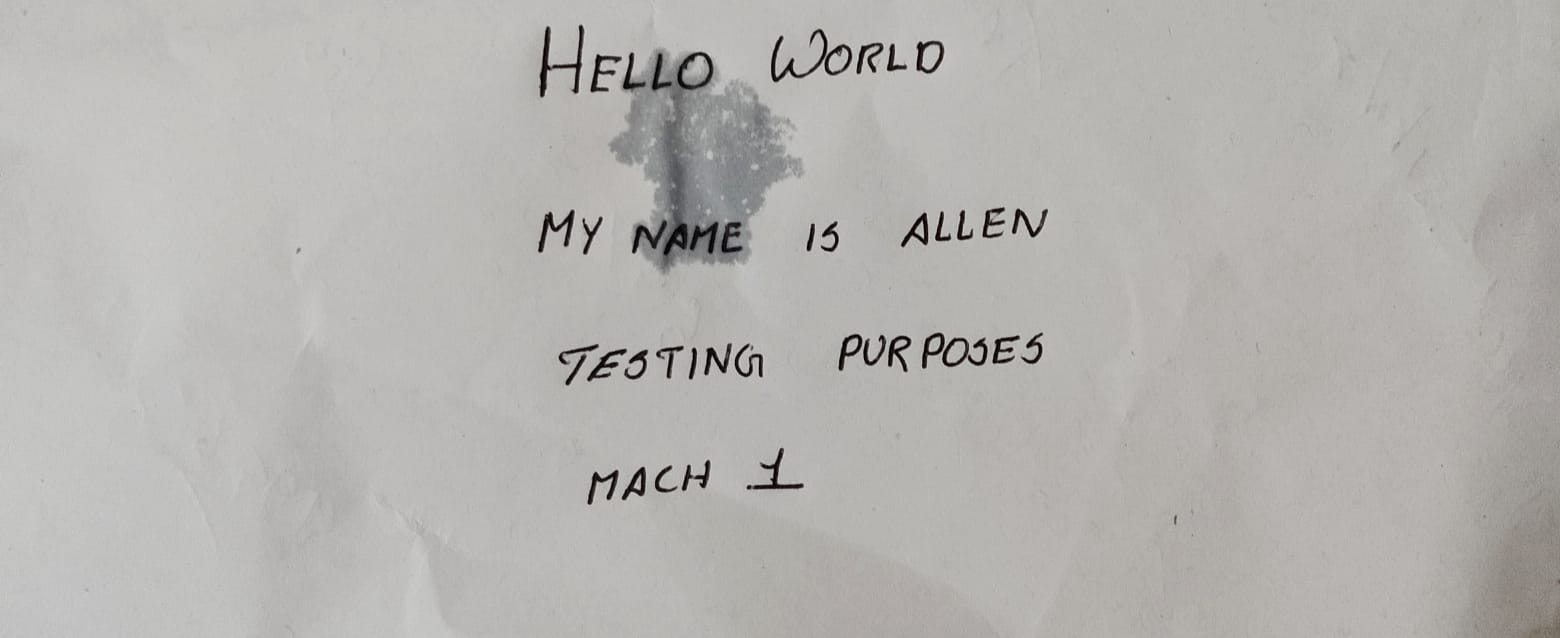 HELLO WORLD
MY NAME IS ALLEN
TESTING PURPOSES
MACH 1